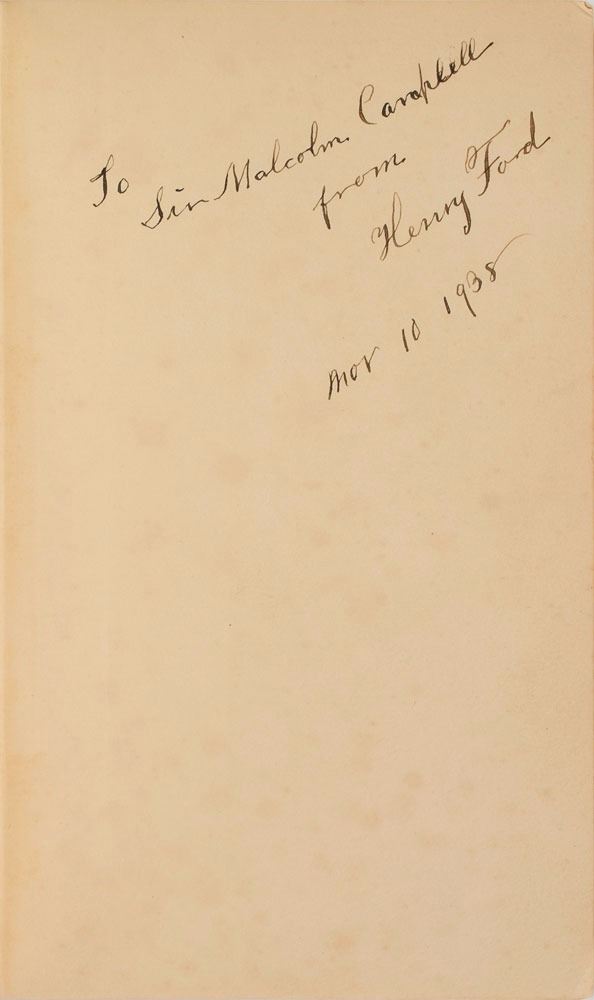 To
Sir Malcolm Campbell
from
Henry Ford
Nov 10 1938